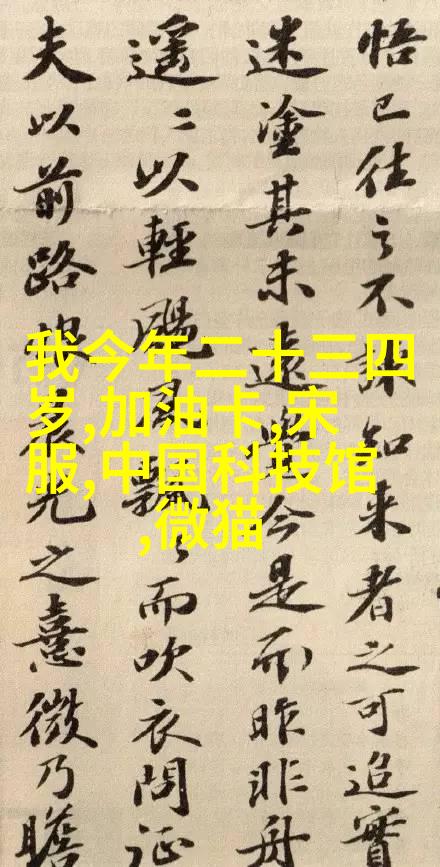 悟已往之不諫知来者之可追實
迷塗其未遠覺今是而昨非舟
遥〻以輕颺風飄〻而吹衣問征
夫以前路恨晨光之熹微乃瞻
我今年二十三四
岁,加油卡,宋
服,中国科技馆
,微猫